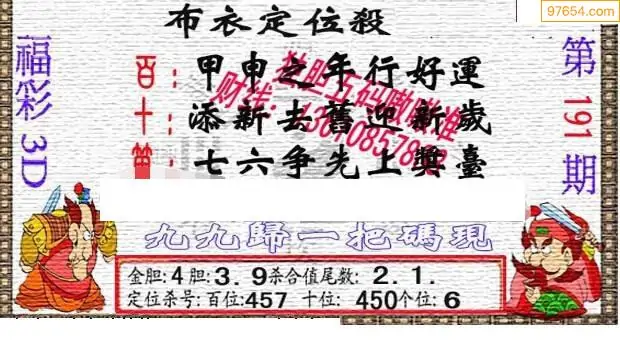 97654.com
布衣定位殺
福彩3D
第191期
百: 甲申之年行好運
十: 添新去舊迎新歲
個: 七六争先上獎臺
九九歸一把碼現
金胆:4胆:3.9杀合值尾数:2.1.
定位杀号:百位:457 十位:450个位:6